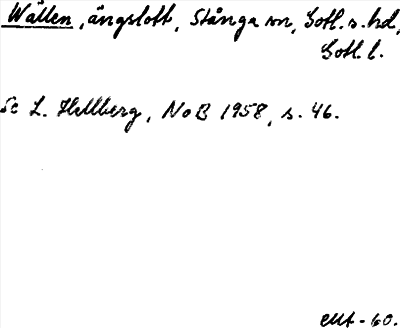 Wällen, ängslott, Stånga sn, Gotl. s. hd,
Gotl. l.
Se L. Hellberg, NoB 1958, s. 46.
-60.